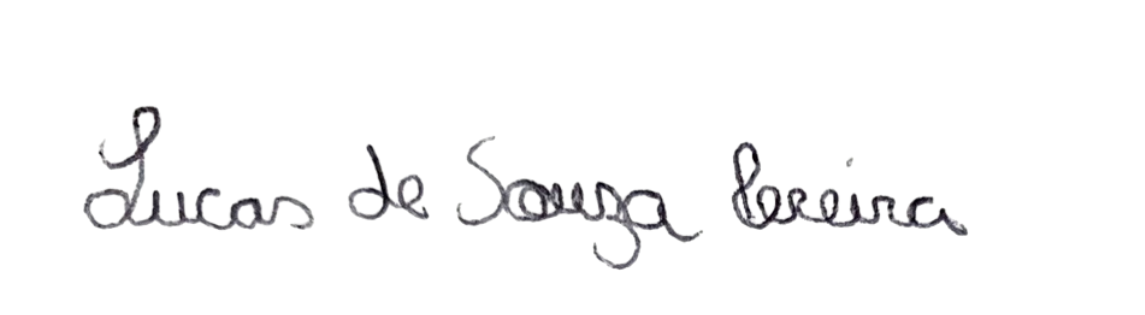 Lucas de Souza Pereira